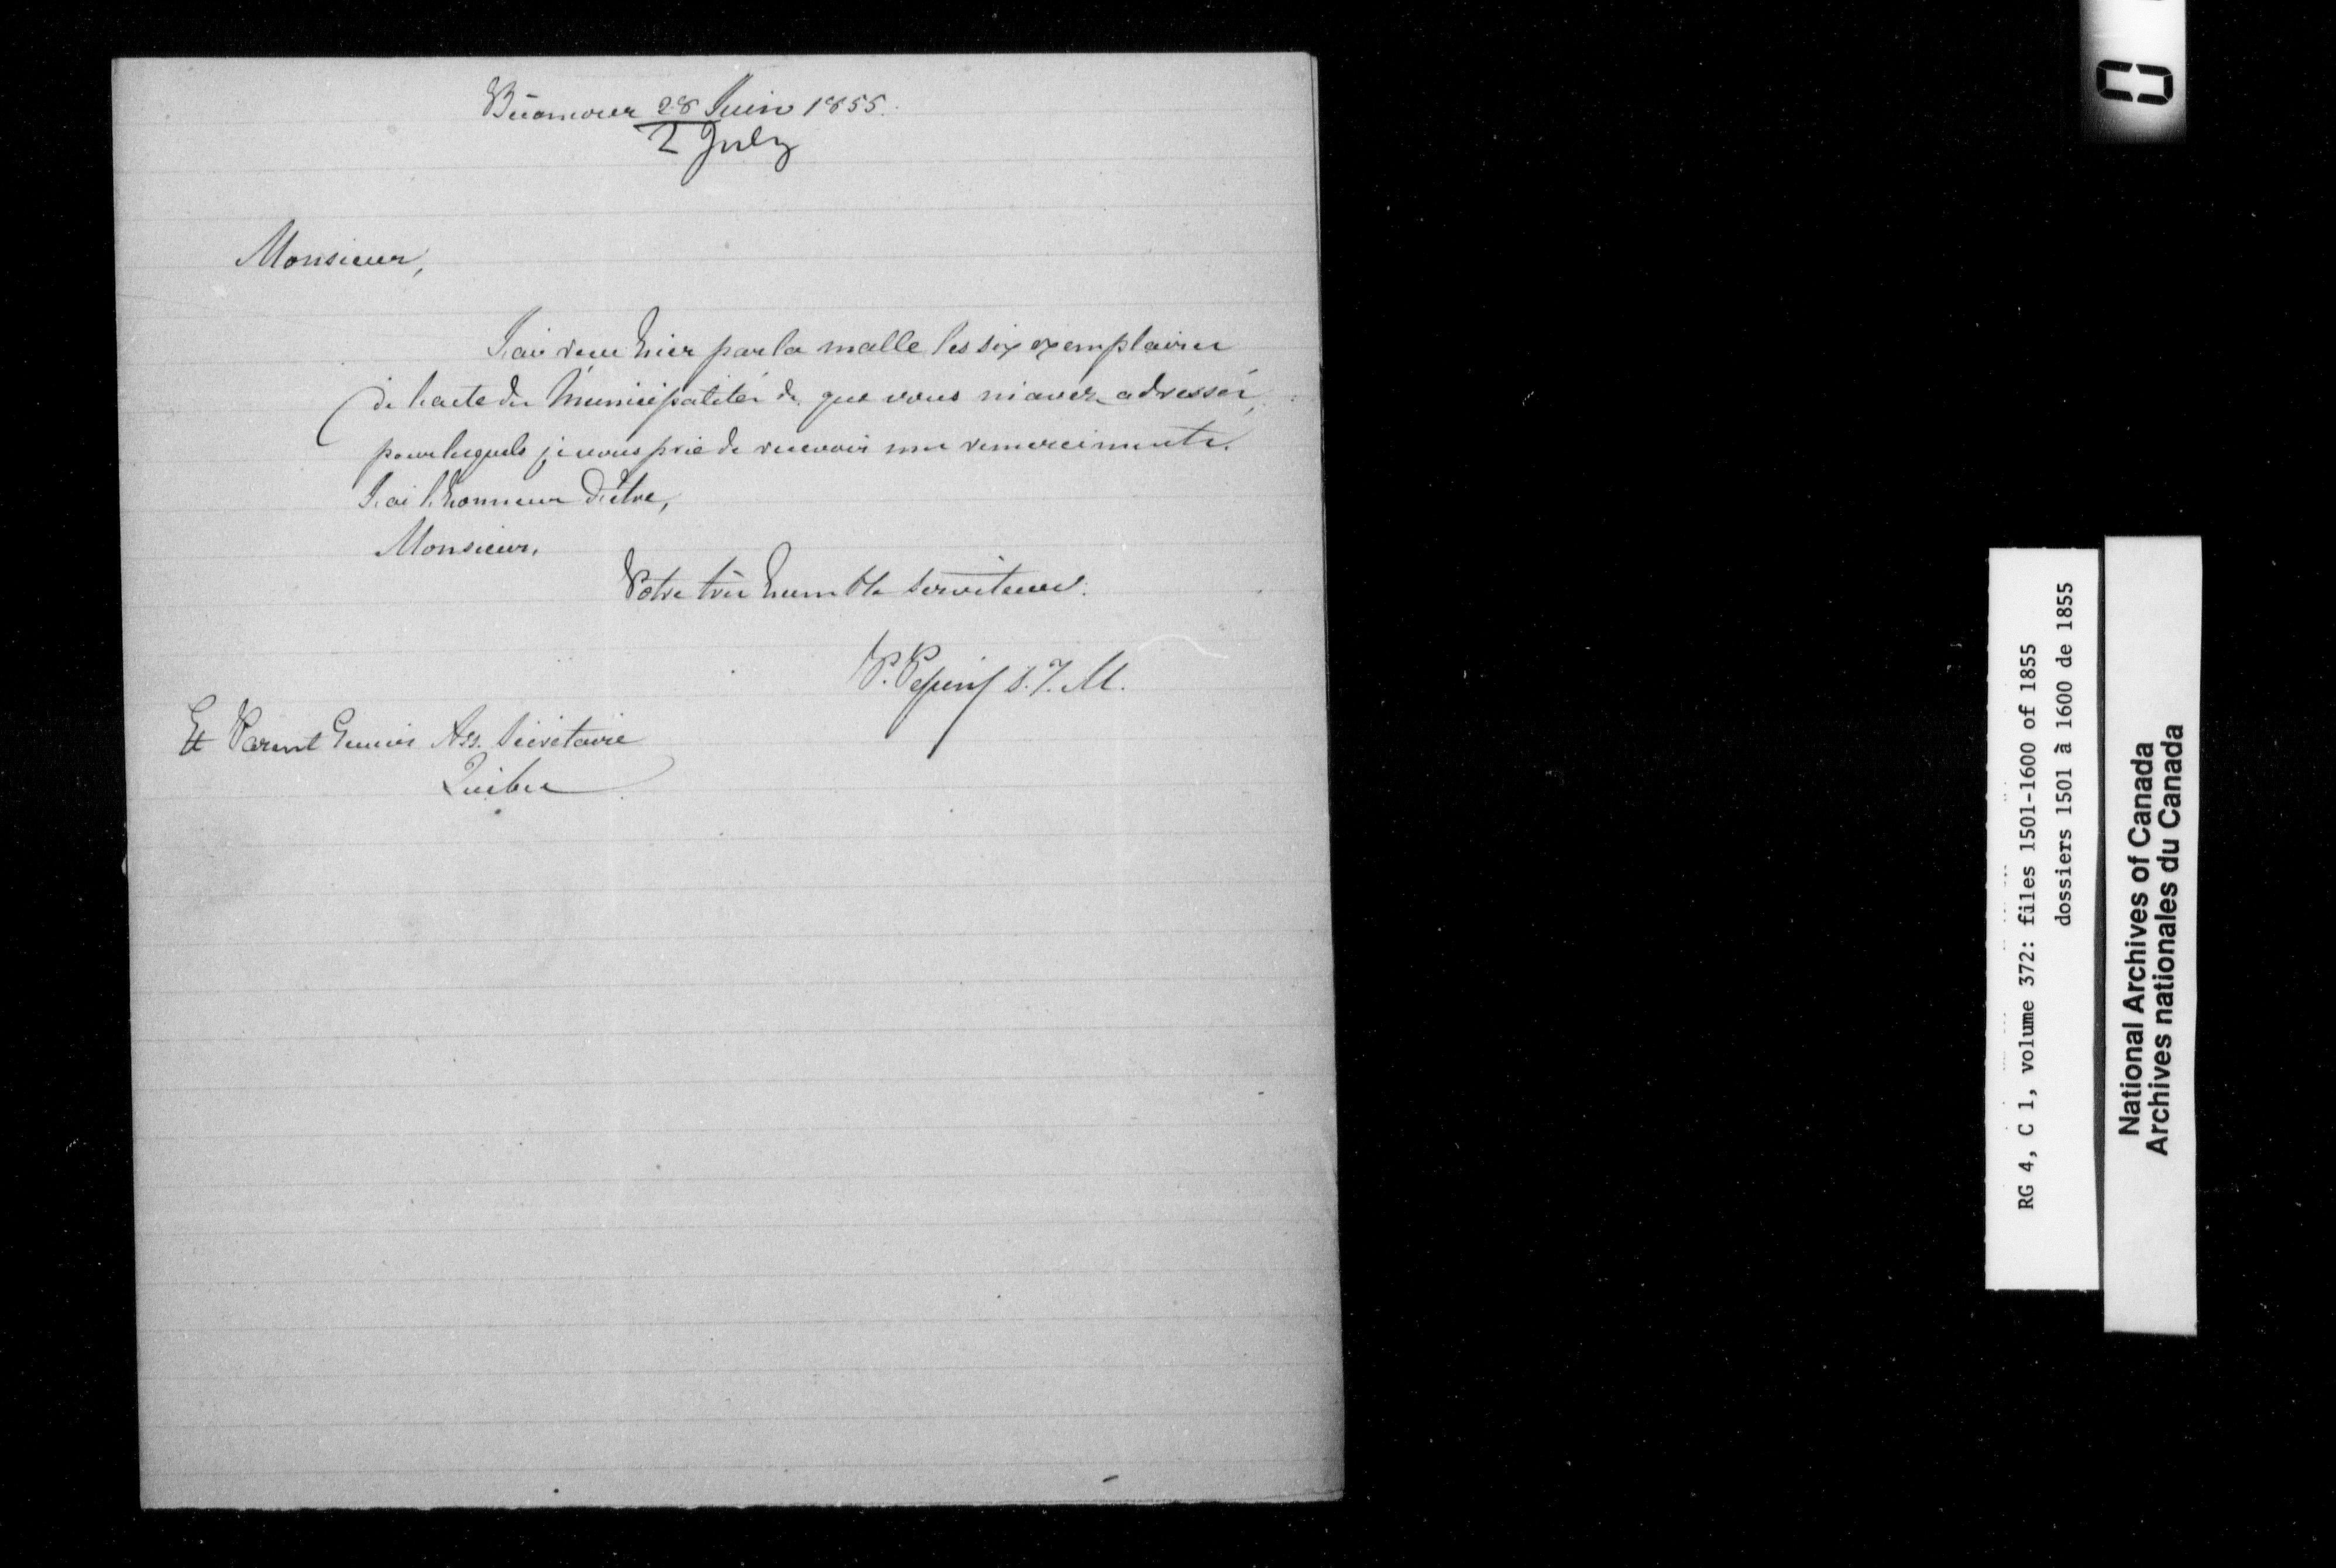 Bécancour 28 Juin 1855.
2 July
Monsieur,
J'ai reçu hier par la malle les six exemplaires
de l'acte des Municipalités de que vous m'avez adressés,
pour lesquels je vous prie de recevoir mes remerciments.
J'ai l'honneur d'être,
Monsieur,
Votre très humble Serviteur.
P. Pepin S. T. M.
Et Parent Ecuier Ass. Sécrétaire
Québec
RG 4, C 1, volume 372: files 1501-1600 of 1855
dossiers 1501 à 1600 de 1855
National Archives of Canada
Archives nationales du Canada